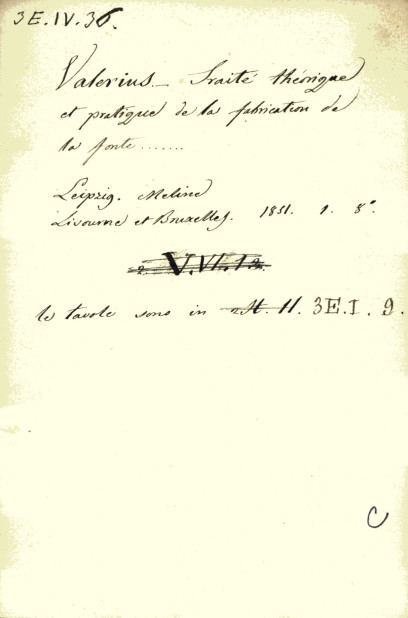 3E.IV.36.
Valerius_ Traité théorique
et pratique de la fabrication de
la fonte.......
Leipzig. Meline
Livourne et Bruxelles. 1851. 1. 8°.
2. V.VI.12.
le tavole sono in 2H. 11. 3E.I. 9.
C